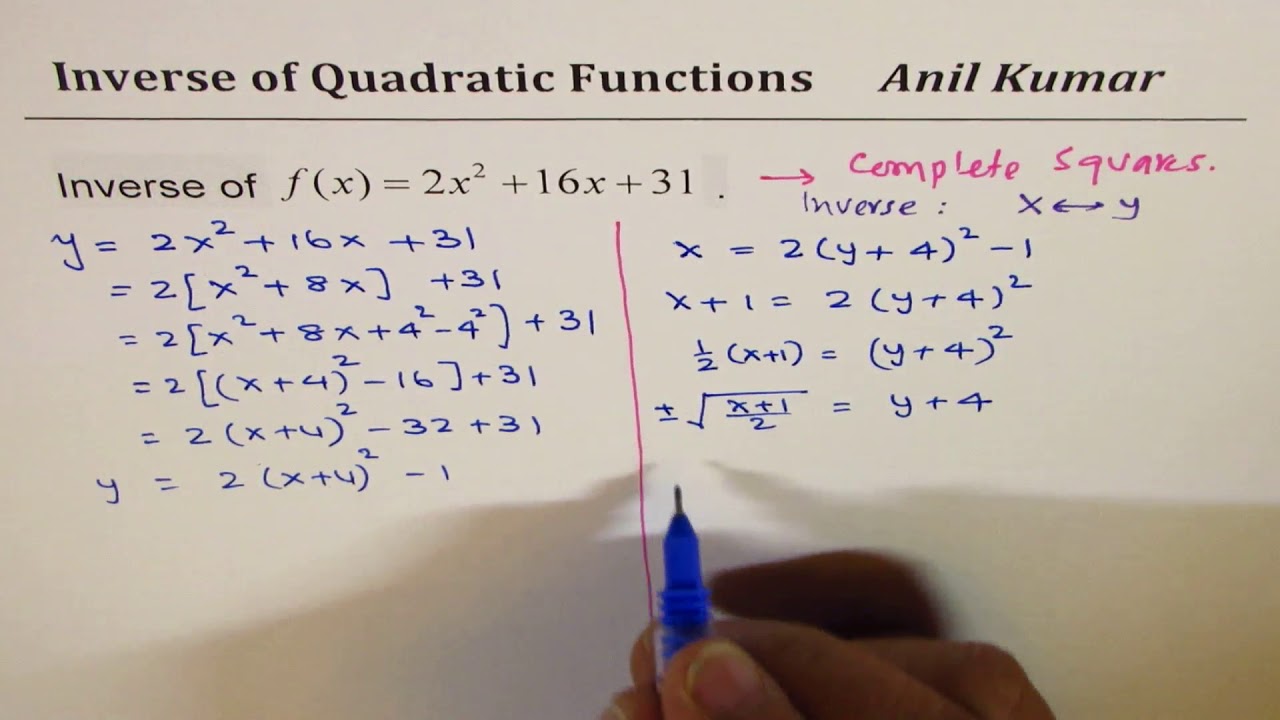 Inverse of Quadratic Functions Anil Kumar
Inverse of f(x) = 2x² + 16x + 31 . → Complete Squares.
Inverse : x ↔ y
y = 2x² + 16x + 31
= 2[x² + 8x] + 31
= 2[x² + 8x + 4² - 4²] + 31
= 2[(x + 4)² - 16] + 31
= 2(x+4)² - 32 + 31
y = 2(x+4)² - 1
x = 2(y + 4)² - 1
x + 1 = 2(y+4)²
½(x+1) = (y+4)²
± √((x+1)/2) = y + 4